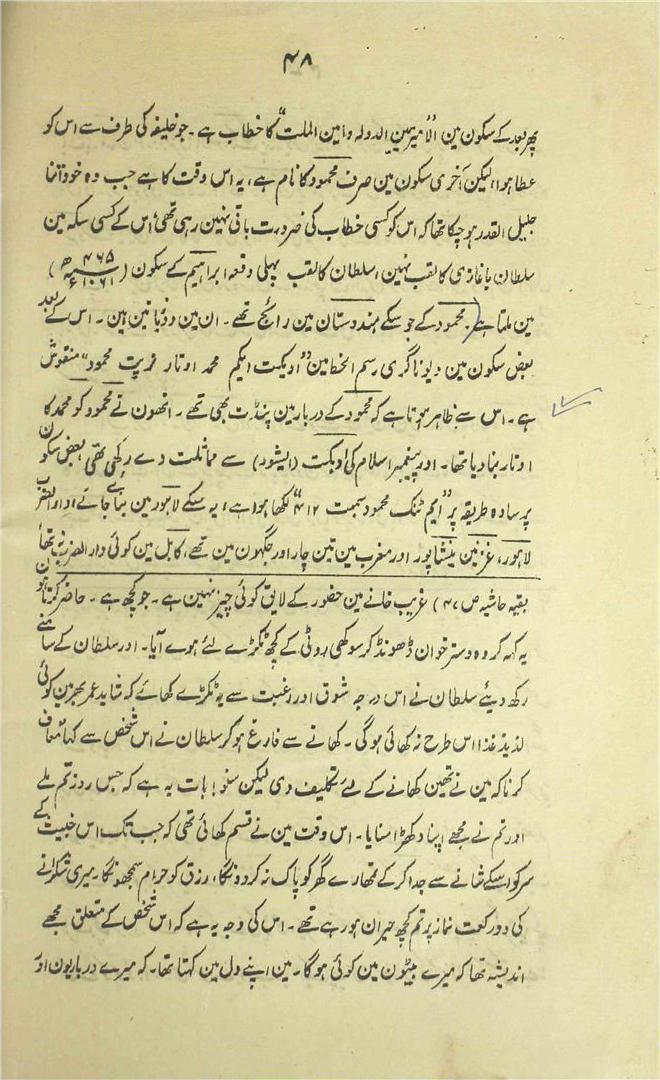 ۴۸
پھر بعد کے سکون مین الامیر یمین الدولہ و امین الملت" کا خطاب ہے۔ جو خلیفہ کی طرف سے اس کو
عطا ہوا، لیکن آخری سکون مین صرف محمود کا نام ہے، یہ اس وقت کا ہے جب وہ خود اتنا
جلیل القدر ہو چکا تھا کہ اس کو کسی خطاب کی ضرورت باقی نہین رہی تھی، اس کے کسی سکہ مین
سلطان یا غازی کا لقب نہین اسلطان کا لقب پہلی دفعہ ابراہیم کے سکون (۴۶۵ھ ۱۰۶۱ء)
مین ملتا ہے) محمود کے جو سکے ہندوستان مین رائج تھے۔ ان مین دو زبانین ہین۔ اس کے بعد
بعض سکون مین دیوناگری رسم الخط مین "اویکت ایکم محمد اوتار نرپت محمود" منقوش
ہے۔ اس سے ظاہر ہوتا ہے کہ محمود کے دربار مین پنڈت بھی تھے۔ انھون نے محمود کو محمد کا
اوتار بنا دیا تھا۔ اور پیغمبر اسلام کی اوبکت (ایشور) سے مماثلت دے رکھی تھی بعض سکون
پر سادہ طریقہ پر "ایم ٹنک محمود سمبت ۴۱۲" لکھا ہوا ہے، یہ سکے لاہور مین بنائے جاتے، دار الضرب
لاہور، غزنین نیشاپور اور مغرب مین تین چار اور جگہون مین تھے، کابل مین کوئی دار الضرب نہ تھا،
بقیہ حاشیہ ص ۴۷) غریب خانے مین حضور کے لایق کوئی چیز نہین ہے۔ جو کچھ ہے۔ حاضر کرتا ہون
یہ کہہ کر وہ دستر خوان ڈھونڈ کر سوکھی روٹی کے کچھ ٹکڑے لئے ہوے آیا۔ اور سلطان کے سامنے
رکھ دیئے سلطان نے اس درجہ شوق اور رغبت سے یہ ٹکڑے کھائے کہ شاید عمر بھر مین کوئی
لذیذ غذا اس طرح نہ کھائی ہوگی۔ کھانے سے فارغ ہو کر سلطان نے اس شخص سے کہا، معاف
کرنا کہ مین نے تمھین کھانے کے لئے تکلیف دی لیکن سنو! بات یہ ہے کہ جس روز تم ملے
اور تم نے مجھے اپنا دکھڑا سنایا۔ اس وقت مین نے قسم کھائی تھی کہ جب تک اس خبیث کے
سر کو اسکے شانے سے جدا کر کے تمھارے گھر کو پاک نہ کردونگا، رزق کو حرام سمجھونگا۔ میری شکرانے
کی دو رکعت نماز پر تم کچھ حیران ہو رہے تھے۔ اس کی وجہ یہ ہے کہ اس شخص کے متعلق مجھے
اندیشہ تھا کہ میرے بیٹون مین کوئی ہوگا۔ مین اپنے دل مین کہتا تھا۔ کہ میرے درباریون اور